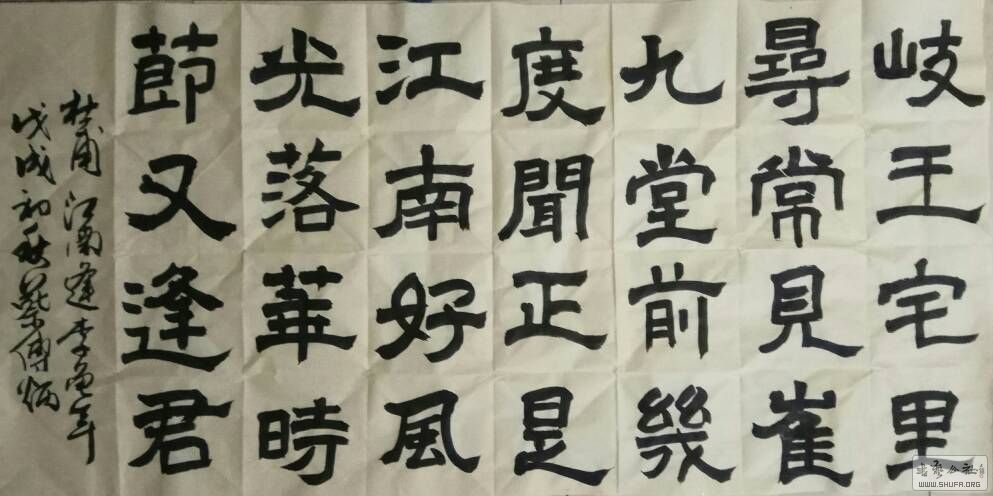 岐王宅里
尋常見崔
九堂前幾
度聞正是
江南好風
光落華時
節又逢君
杜甫江南逢李龜年
戊戌初秋蔡傅炳
書法公社
WWW.SHUFA.ORG